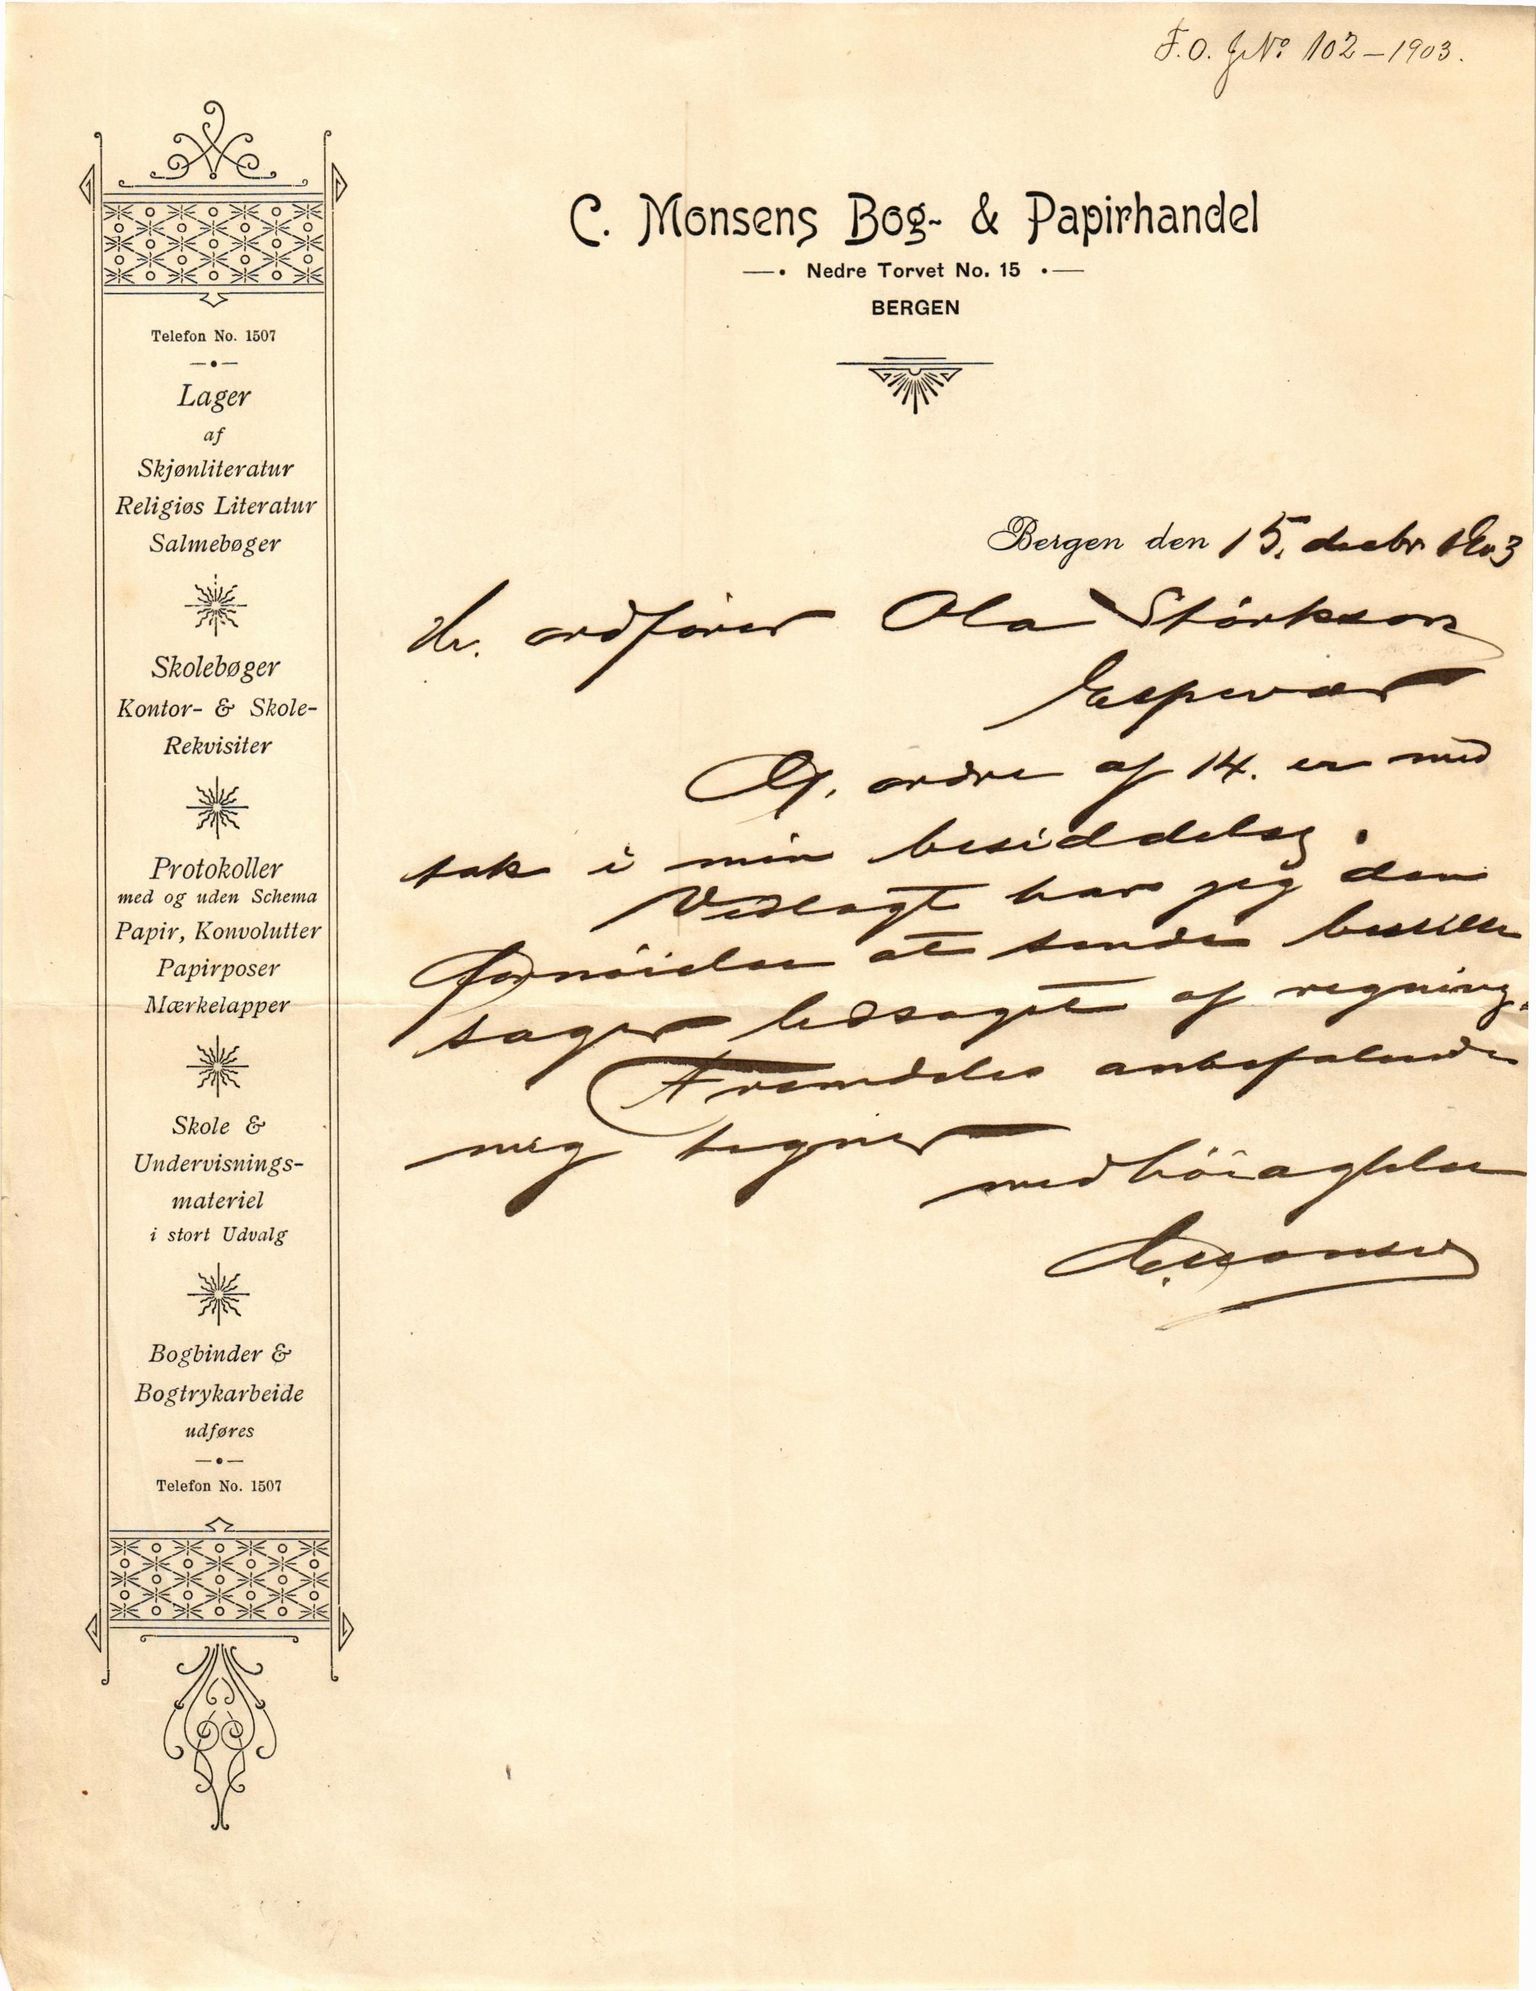 F.O. J.No. 102-1903.
C. Monsens Bog- & Papirhandel
Nedre Torvet No. 15
BERGEN
Telefon No. 1507
Lager
af
Skjønliteratur
Religiøs Literatur
Salmebøger
Skolebøger
Kontor- & Skole-
Rekvisiter
Protokoller
med og uden Schema
Papir, Konvolutter
Papirposer
Mærkelapper
Skole &
Undervisnings-
materiel
i stort Udvalg
Bogbinder &
Bogtrykarbeide
udføres
Telefon No. 1507
Bergen den 15. decbr 1903
Hr. ordfører Ola Størkson
Espevær
ordre af 14. er med
tak i min besiddelse.
Vedlagt har jeg den
fornøielse at sende bestilte
sager ledsaget af regning.
Fremdeles anbefalende
mig tegner
med høiagtelse
C. Monsen